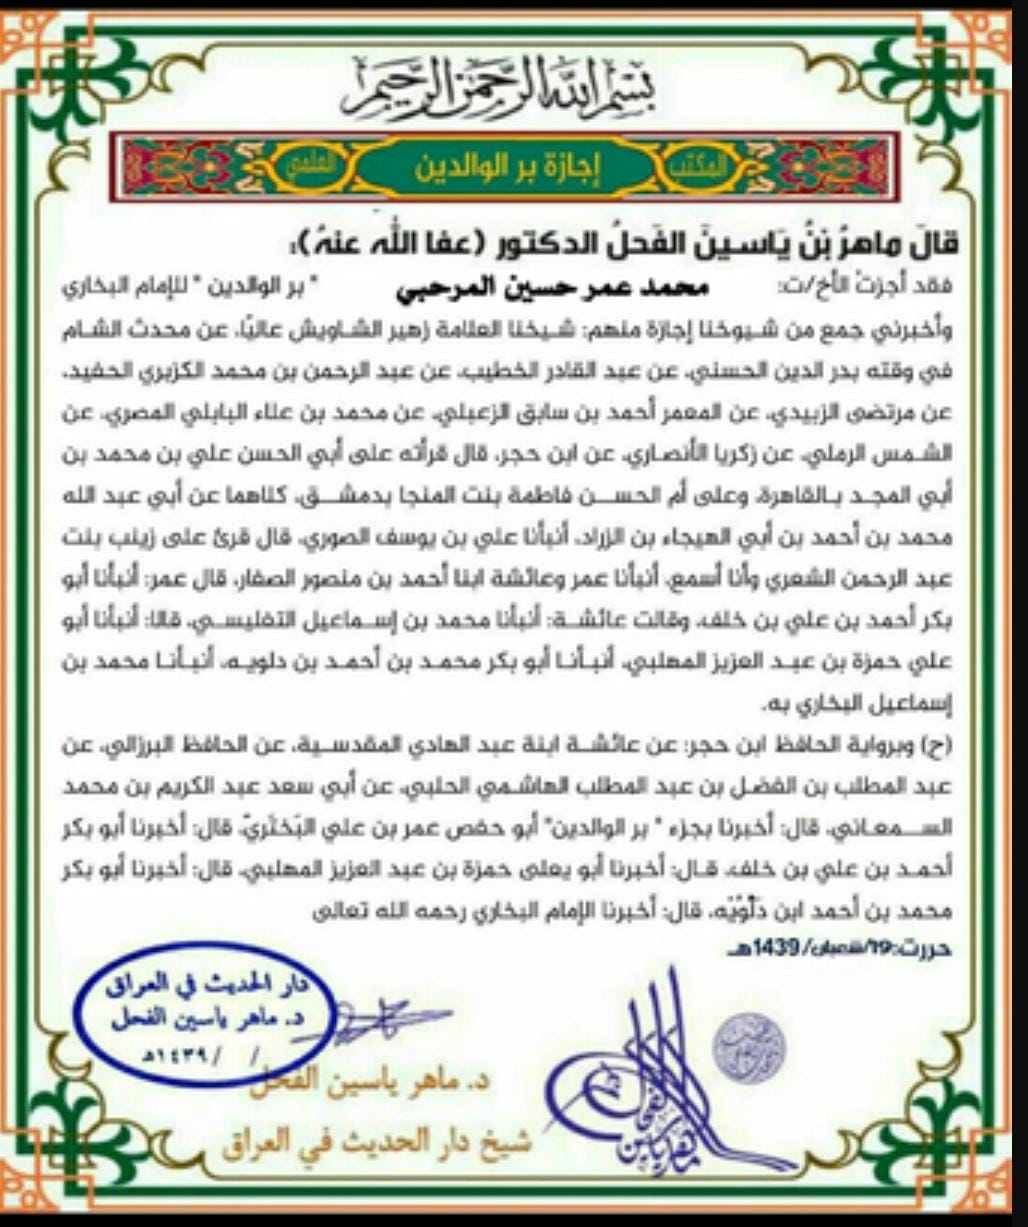 بسم الله الرحمن الرحيم
المكتب إجازة بر الوالدين العلمي
قالَ ماهرُ بْنُ يَاسينَ الفَحلُ الدكتور (عفا اللّٰه عنهُ):
فقد أجزتُ الأخ/ت: محمد عمر حسين المرحبي " بر الوالدين " للإمام البخاري
وأخبرني جمع من شيوخنا إجازة منهم: شيخنا العلامة زهير الشاويش عاليًا، عن محدث الشام
في وقته بدر الدين الحسني، عن عبد القادر الخطيب، عن عبد الرحمن بن محمد الكزبري الحفيد،
عن مرتضى الزبيدي، عن المعمر أحمد بن سابق الزعبلي، عن محمد بن علاء البابلي المصري، عن
الشمس الرملي، عن زكريا الأنصاري، عن ابن حجر، قال قرأته على أبي الحسن علي بن محمد بن
أبي المجد بالقاهرة، وعلى أم الحسن فاطمة بنت المنجا بدمشق، كلاهما عن أبي عبد الله
محمد بن أحمد بن أبي الهيجاء بن الزراد، أنبأنا علي بن يوسف الصوري، قال قرئ على زينب بنت
عبد الرحمن الشعري وأنا أسمع، أنبأنا عمر وعائشة ابنا أحمد بن منصور الصفار، قال عمر: أنبأنا أبو
بكر أحمد بن علي بن خلف، وقالت عائشة: أنبأنا محمد بن إسماعيل التفليسي، قالا: أنبأنا أبو
علي حمزة بن عبد العزيز المهلبي، أنبأنا أبو بكر محمد بن أحمد بن دلويه، أنبأنا محمد بن
إسماعيل البخاري به.
(ح) وبرواية الحافظ ابن حجر: عن عائشة ابنة عبد الهادي المقدسية، عن الحافظ البرزالي، عن
عبد المطلب بن الفضل بن عبد المطلب الهاشمي الحلبي، عن أبي سعد عبد الكريم بن محمد
السمعاني، قال: أخبرنا بجزء " بر الوالدين" أبو حفص عمر بن علي البَختَريّ، قال: أخبرنا أبو بكر
أحمد بن علي بن خلف، قال: أخبرنا أبو يعلى حمزة بن عبد العزيز المهلبي، قال: أخبرنا أبو بكر
محمد بن أحمد ابن دَلُّوَيْه، قال: أخبرنا الإمام البخاري رحمه الله تعالى
حررت:19/شعبان/1439هـ
دار الحديث في العراق
د. ماهر ياسين الفحل
/ / ١٤٣٩هـ
د. ماهر ياسين الفحل
شيخ دار الحديث في العراق
ماهر ياسين الفحل